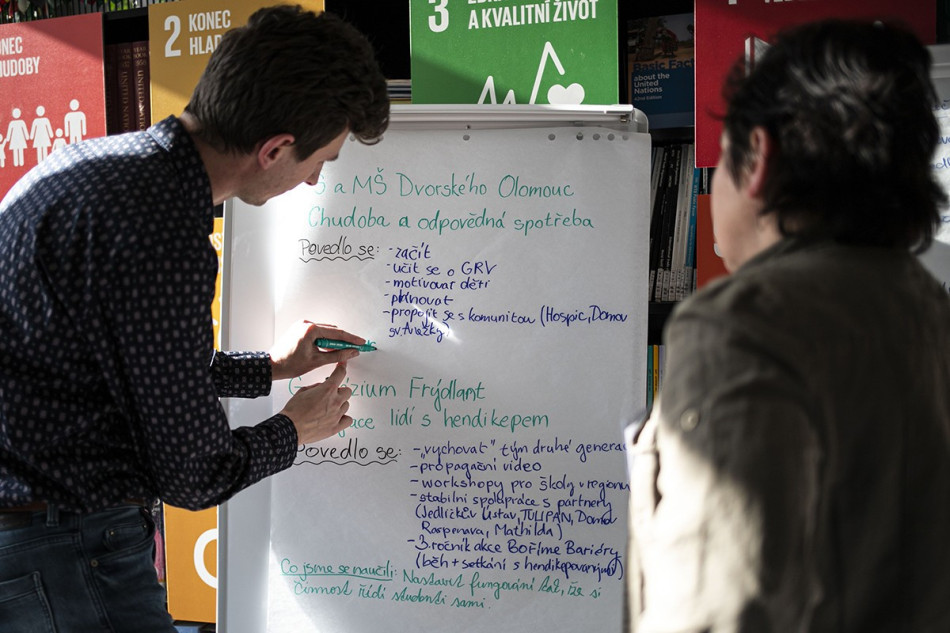 2 KONEC
HLAD
3
A KVALITNÍ ŽIVOT
ONEC
HUDOBY
Basic Facts
about the
United
Nations
a MŠ Dvorského Olomouc
Chudoba a odpovědná spotřeba
Povedlo se: - začít
- učit se o GRV
- motivovat děti
- plánovat
- propojit se s komunitou (Hospic, Domov
Gymnázium Frýdlant
lidí s hendikepem
Povedlo se: - „vychovat" tým druhé generac
- propagační video
- workshopy pro školy v regionu
- stabilní spolupráce s partnery
(Jedličkův ústav, TULIPAN, Domov
Raspenava, Mathilda)
- 3. ročník akce Boříme Bariéry
(běh + setkání s hendikepovanými)
Co jsme se naučili: Nastavit fungování tak, že si
činnost řídí studenti sami.